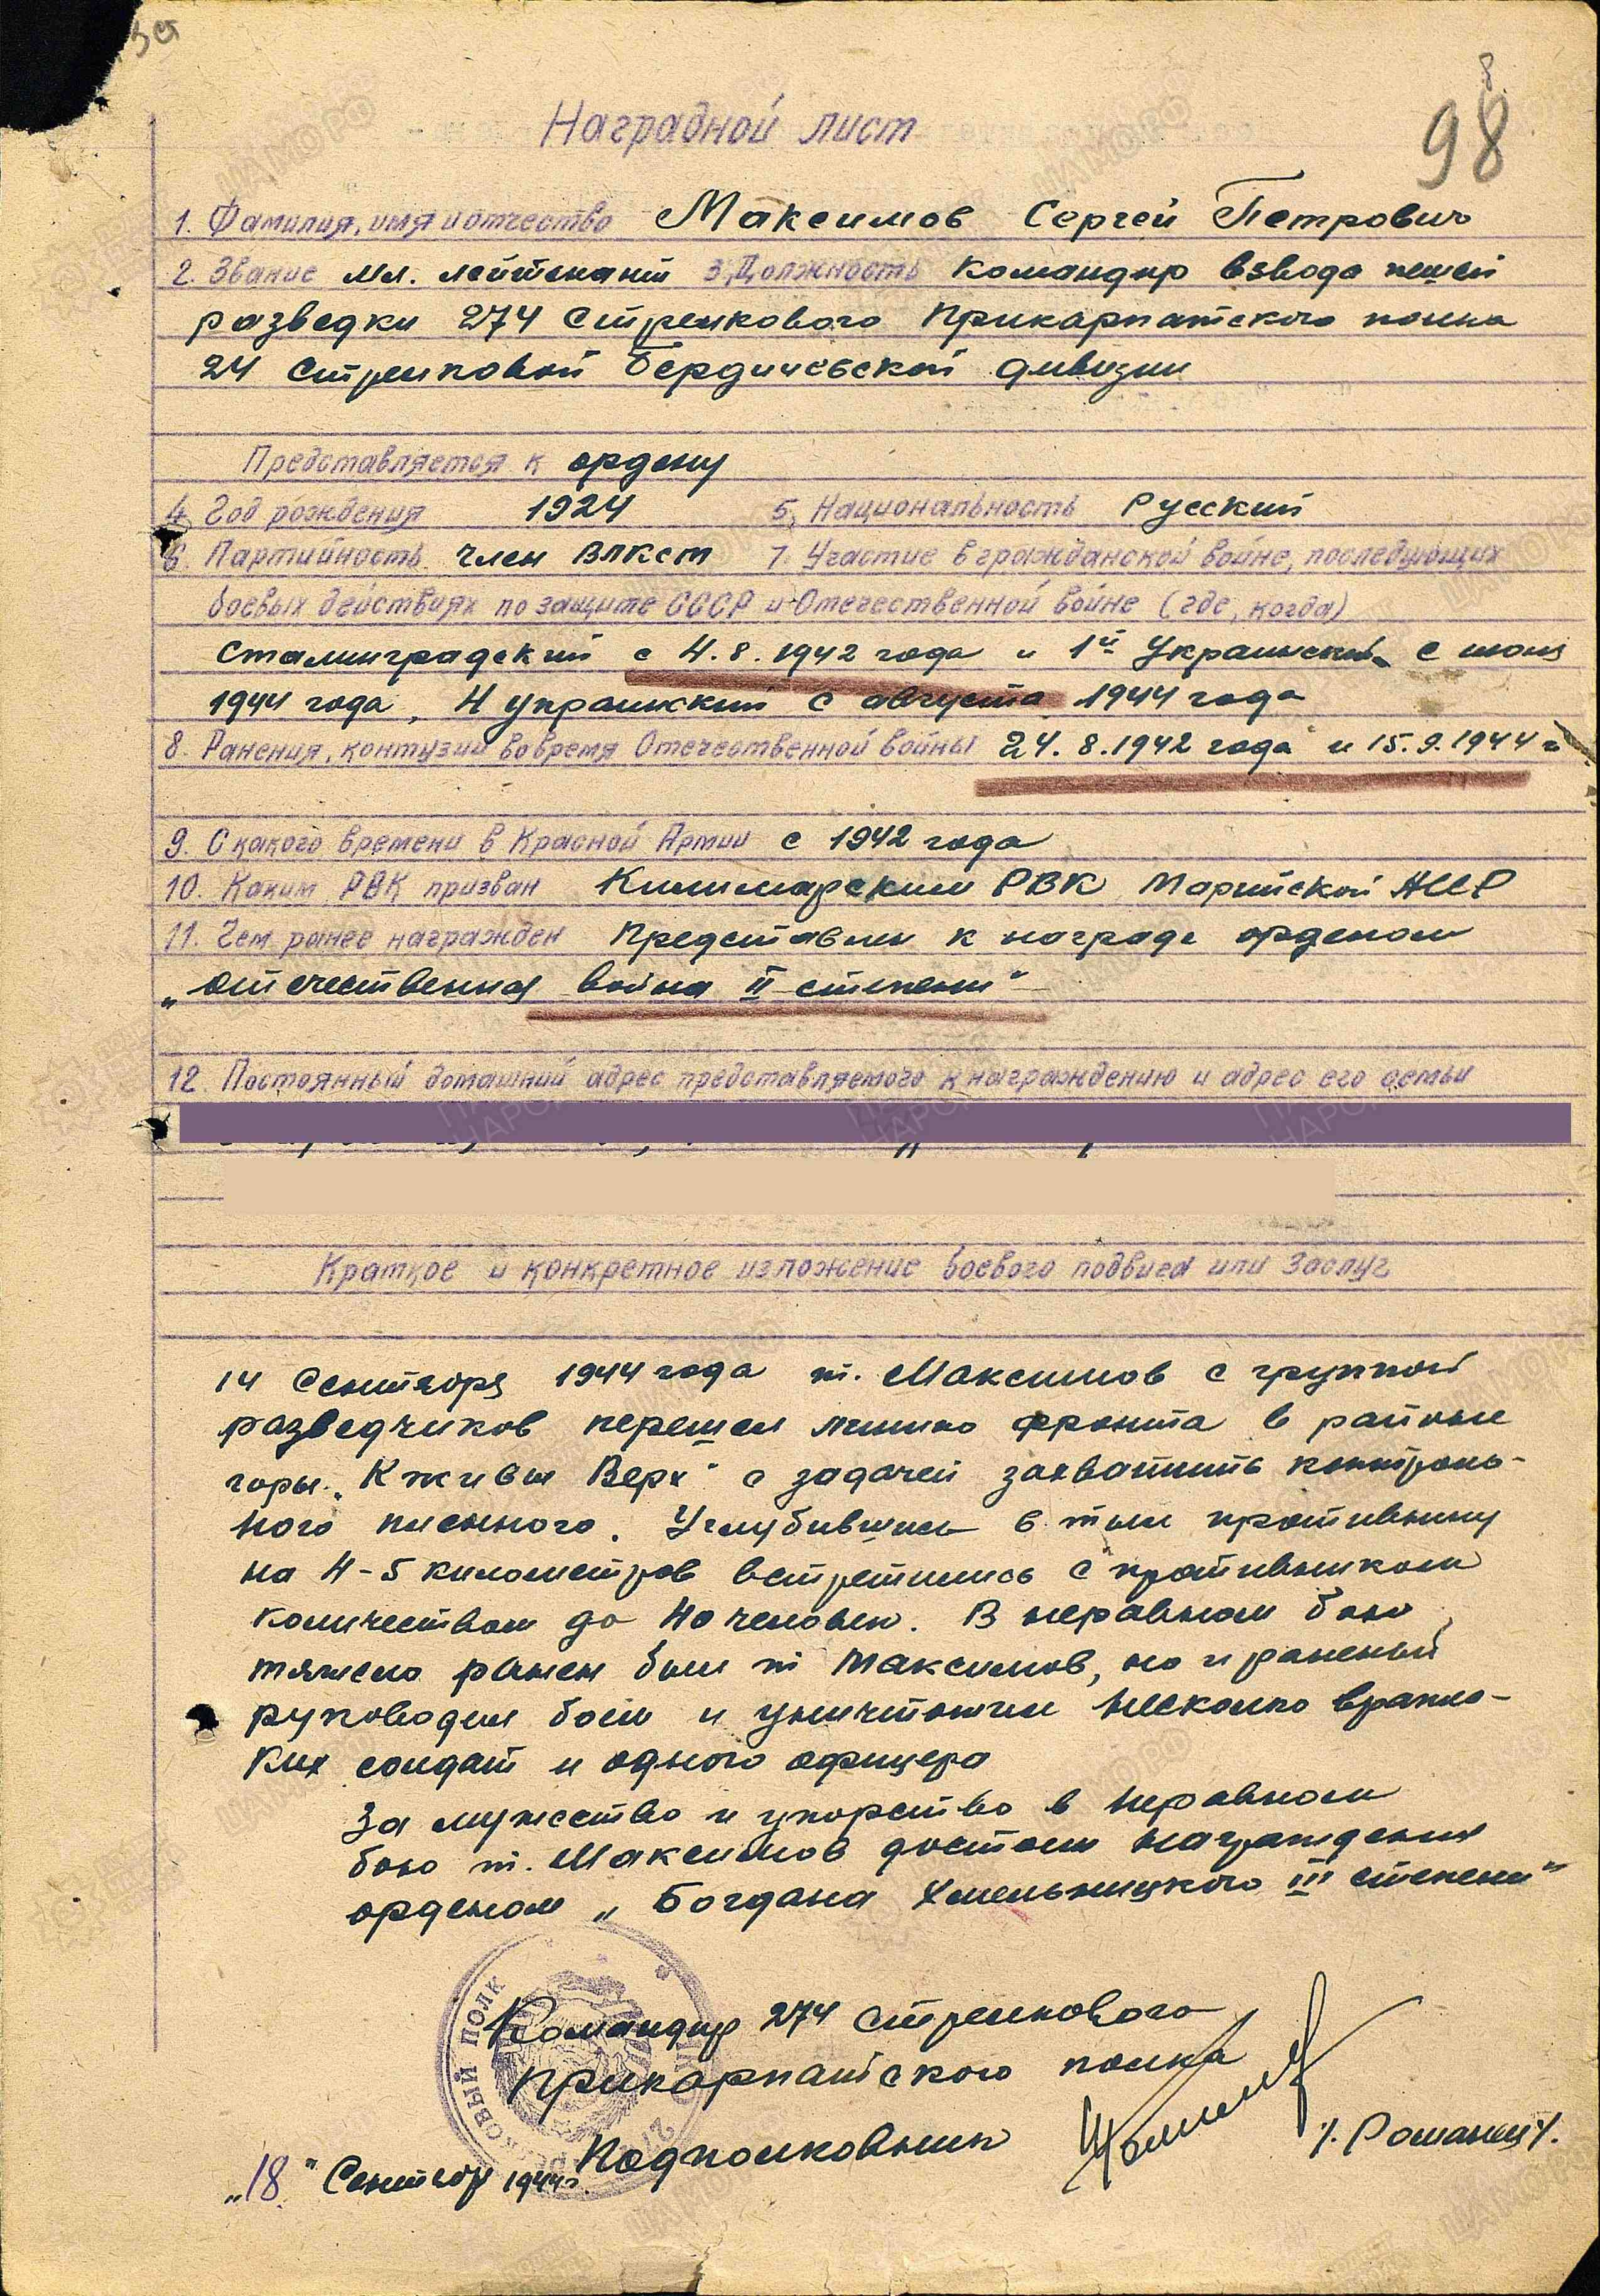 98
Наградной лист
1. Фамилия, имя и отчество Максимов Сергей Петрович
2. Звание мл. лейтенант 3. Должность командир взвода пешей
разведки 274 Стрелкового Прикарпатского полка
24 стрелковой Бердичевской дивизии
Представляется к ордену
4. Год рождения 1924 5. Национальность Русский
6. Партийность член ВЛКСМ 7. Участие в гражданской войне, последующих
боевых действиях по защите СССР и Отечественной войне (где, когда)
Сталинградский с 4.8.1942 года и 1й Украинский с июня
1944 года, 4 украинский с августа 1944 года
8. Ранения, контузии во время Отечественной войны 24.8.1942 года и 15.9.1944 г
9. С какого времени в Красной Армии с 1942 года
10. Каким РВК призван Килимарским РВК Марийской АССР
11. Чем ранее награжден Представлен к награде орденом
„Отечественная война II степени"
12. Постоянный домашний адрес представляемого к награждению и адрес его семьи
Краткое и конкретное изложение боевого подвига или заслуг
14 Сентября 1944 года т. Максимов с группой
разведчиков перешел линию фронта в районе
горы „Кживы Верх" с задачей захватить контроль-
ного пленного. Углубившись в тыл противнику
на 4-5 километров встретились с противником
количеством до 40 человек. В неравном бою
тяжело ранен был т Максимов, но и раненый
руководил боем и уничтожил несколько вражес-
ких солдат и одного офицера
За мужество и упорство в неравном
бою т. Максимов достоин награждения
орденом „Богдана Хмельницкого III степени"
Командир 274 стрелкового
Прикарпатского полка
Подполковник /. Романец /.
„18" Сентябр 1944 г.